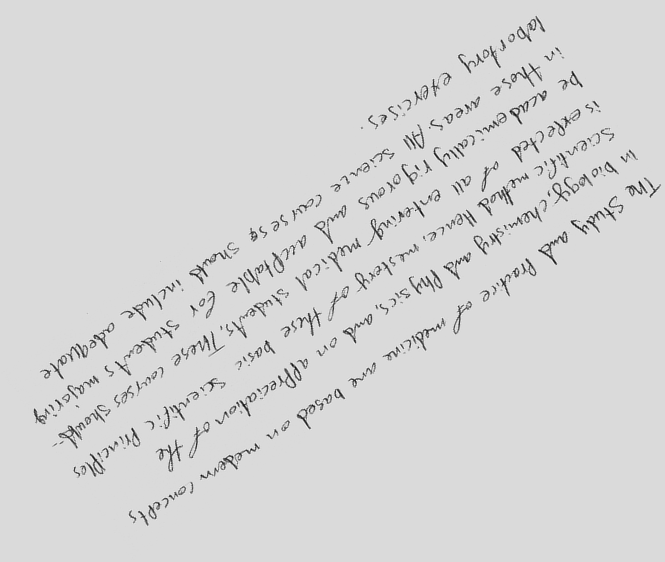 The Study and Practice of medicine are based on modern concepts
in biology, chemistry and Physics, and on appreciation of the
Scientific method. Hence, mestery of these basic scientific Principles
is expected of all entering medical students. These courses should-
be academically rigorous and acceptable for students majoring
in these areas. All science courses should include adequate
labortory exercises.